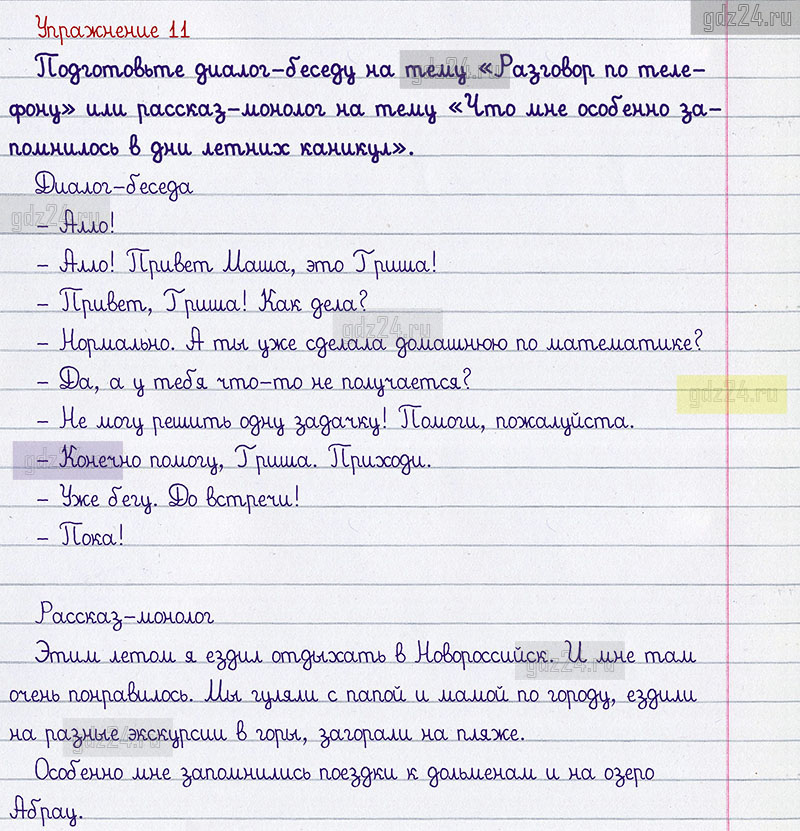 gdz24.ru
Упражнение 11
Подготовьте диалог-беседу на тему «Разговор по теле-
фону» или рассказ-монолог на тему «Что мне особенно за-
помнилось в дни летних каникул».
Диалог-беседа
gdz24.ru
– Алло!
– Алло! Привет Маша, это Гриша!
– Привет, Гриша! Как дела?
gdz24.ru
– Нормально. А ты уже сделала домашнюю по математике?
– Да, а у тебя что-то не получается?
gdz24.ru
– Не могу решить одну задачку! Помоги, пожалуйста.
– Конечно помогу, Гриша. Приходи.
– Уже бегу. До встречи!
– Пока!
Рассказ-монолог
Этим летом я ездил отдыхать в Новороссийск. И мне там
gdz24.ru
очень понравилось. Мы гуляли с папой и мамой по городу, ездили
на разные экскурсии в горы, загорали на пляже.
gdz24.ru
Особенно мне запомнились поездки к дольменам и на озеро
Абрау.